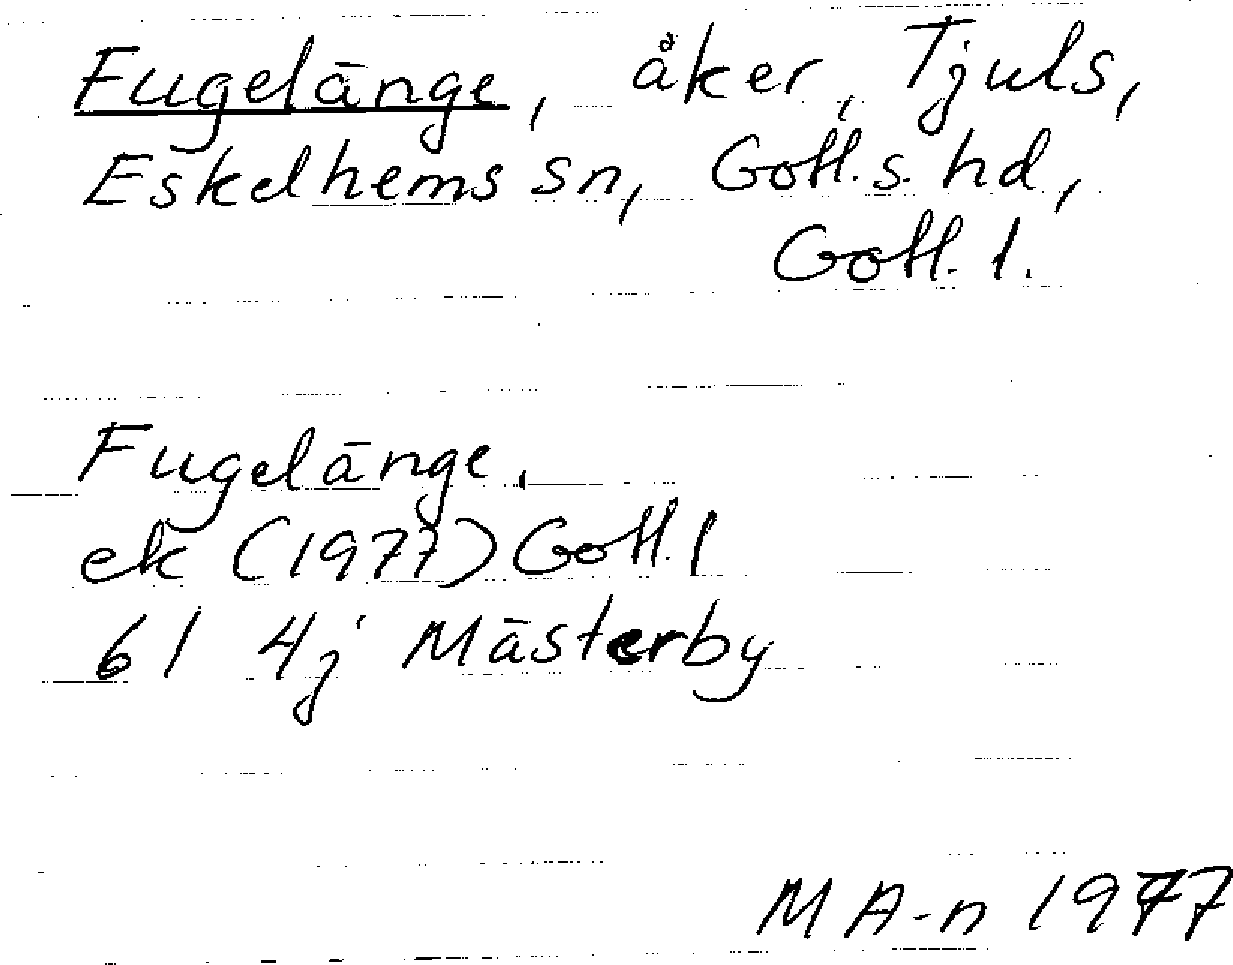 Fugelänge, åker, Tjuls,
Eskelhems sn, Gotl. s. hd,
Gotl. l.
Fugelänge,
ek (1977) Gotl. l
61 4j Mästerby
M A-n 1977